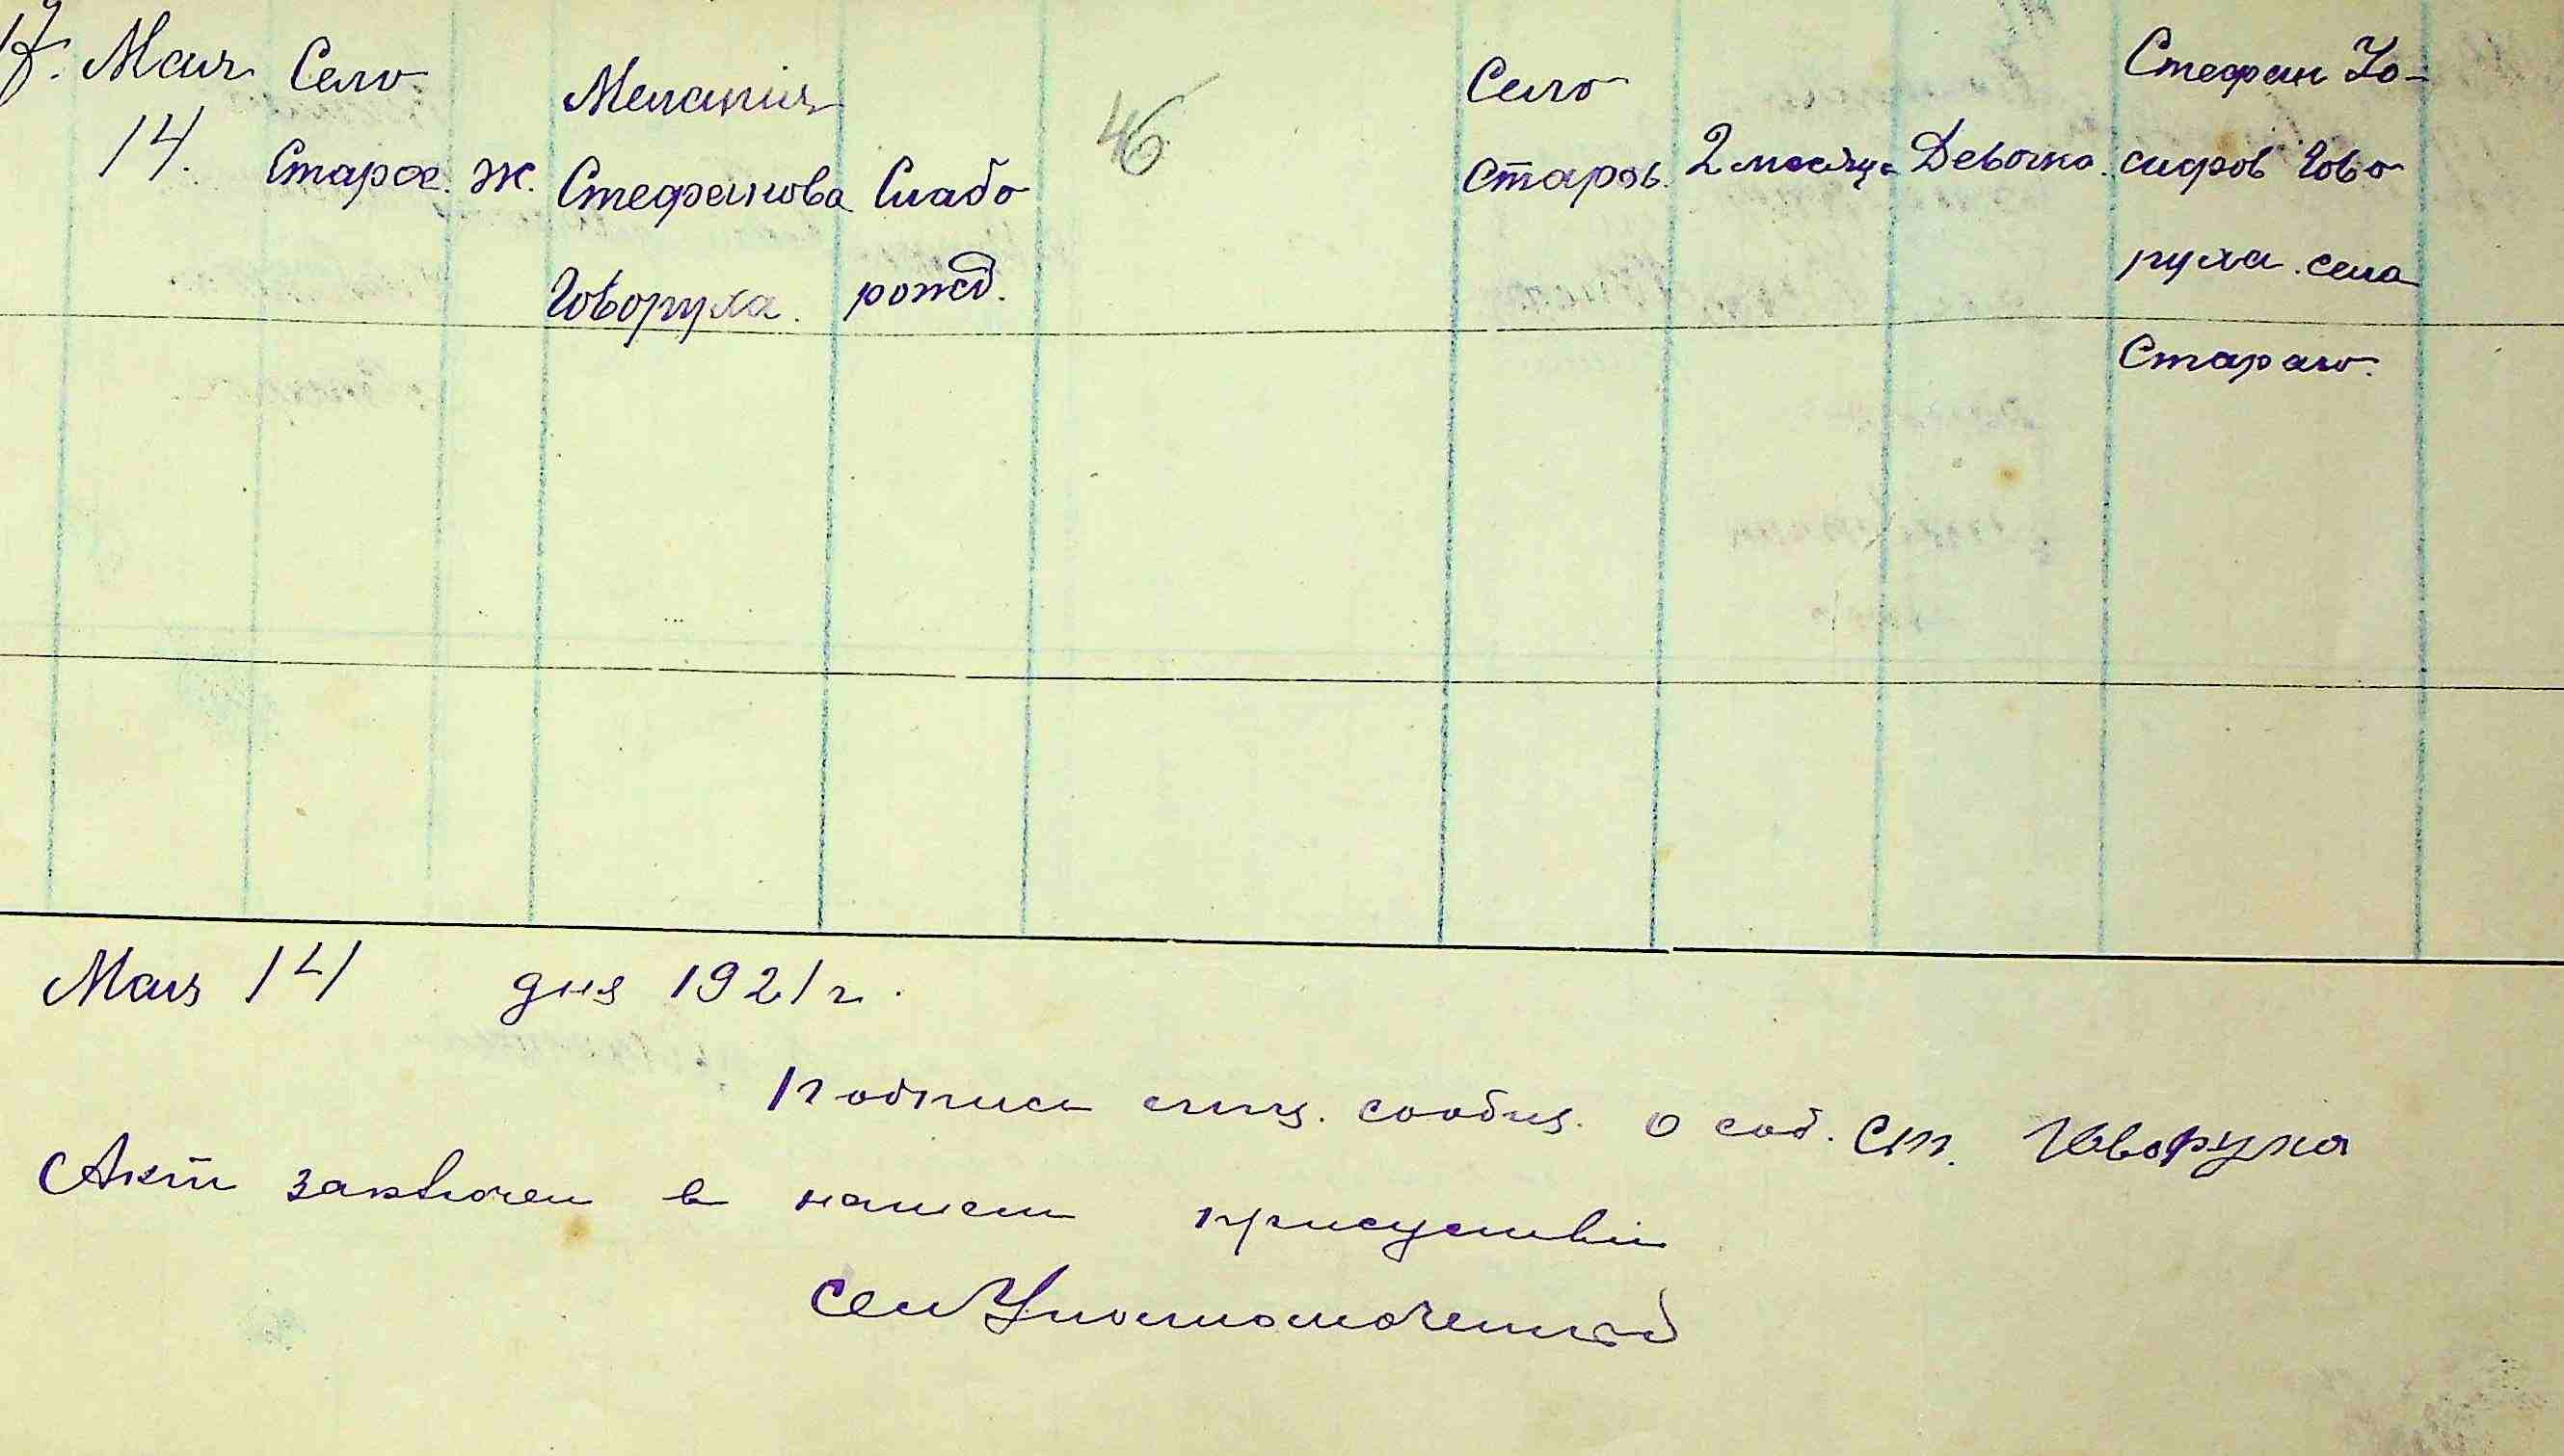 17. Мая 14.
Село Старое.
ж.
Меланія
Стефанова
Говоруха.
Слабо
рожд.
46
Село
Старов.
2 месяца
Девочка.
Стефан Іо-
сифов Гово
руха села
Стараго.
Мая 14 дня 1921 г.
Подпись лиц. сообщ. о соб. Ст. Говоруха
Акт заключен в нашем присуствіи
СелУполномоченный